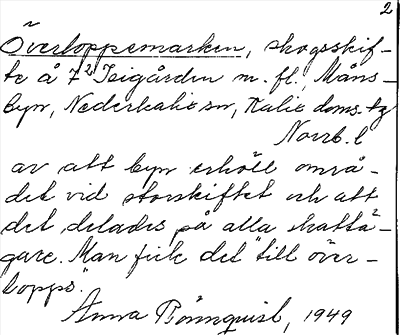 2
Överloppsmarken, skogsskif-
te å 7² Teigården m. fl., Måns-
byn, Nederkalix sn, Kalix doms. tg
Norrb. l
av att byn erhöll områ-
det vid storskiftet och att
det delades på alla skattä-
gare. Man fick det "till över-
lopps".
Anna Rönnquist, 1949